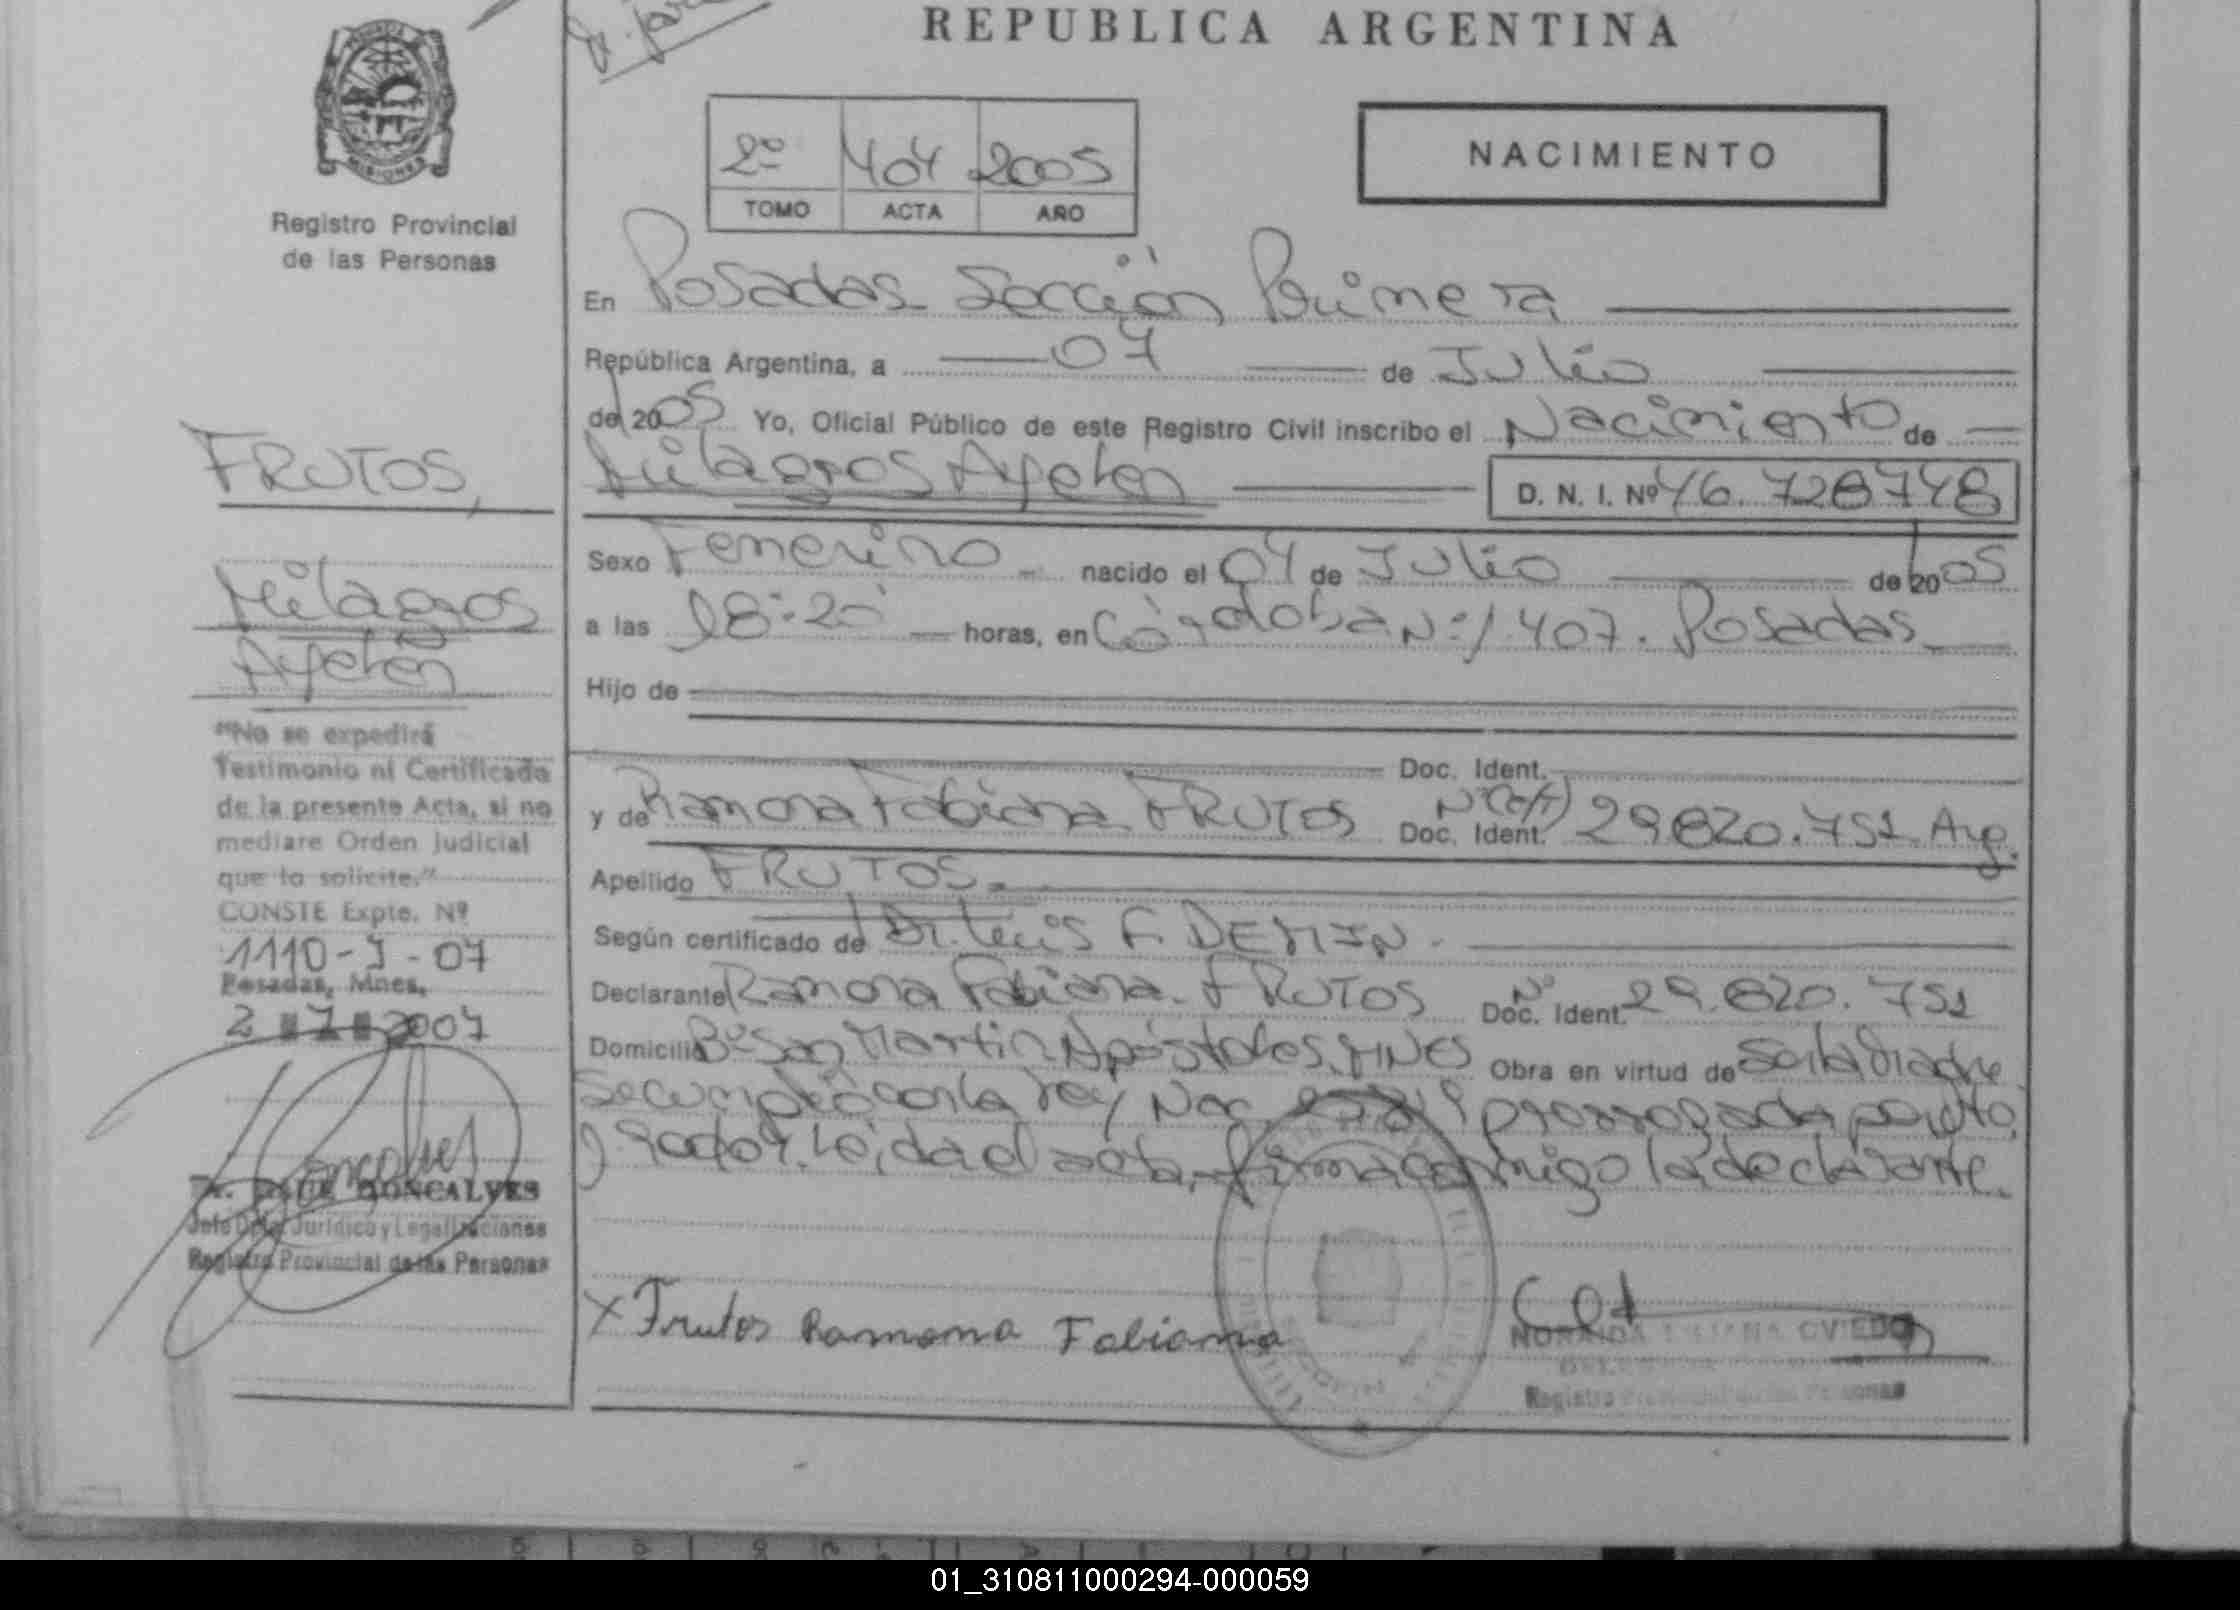 REPUBLICA ARGENTINA
MISIONES
Registro Provincial
de las Personas
2º 404 2005
TOMO ACTA AÑO
NACIMIENTO
En Posadas Sección Primera
República Argentina, a 07 de Julio
de 2005 Yo, Oficial Público de este Registro Civil inscribo el Nacimiento de
Milagros Ayelen D. N. I. Nº 46.728748
Sexo Femenino nacido el 04 de Julio de 2005
a las 18:20 horas, en Córdoba Nº 1.407. Posadas
Hijo de
Doc. Ident.
y de Ramona Fabiana FRUTOS Doc. Ident. Nº 29.820.751 Arg.
Apellido FRUTOS
Según certificado de Dr. Luis F. DEMIN.
Declarante Ramona Fabiana FRUTOS Doc. Ident. Nº 29.820.751
Domicilio Bº San Martin Apóstoles, MNES Obra en virtud de ser la Madre
Se cumplió con la Ley Nac. prorrogada por Dto.
Leida el acta, firma conmigo la declarante.
X Frutos Ramona Fabiana
NORAIDA LILIANA OVIEDO
Registro Provincial de las Personas
FRUTOS,
Milagros
Ayelén
"No se expedirá
Testimonio ni Certificado
de la presente Acta, si no
mediare Orden Judicial
que lo solicite."
CONSTE Expte. Nº
1110-J-07
Posadas, Mnes,
2 7 2007
GONCALVES
Jefe Dpto. Jurídico y Legalizaciones
Registro Provincial de las Personas
01_310811000294-000059